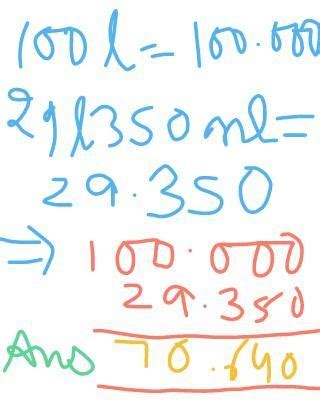 100 l = 100.000
29 l 350 ml =
29.350
⇒ 100.000
29.350
Ans 70.640